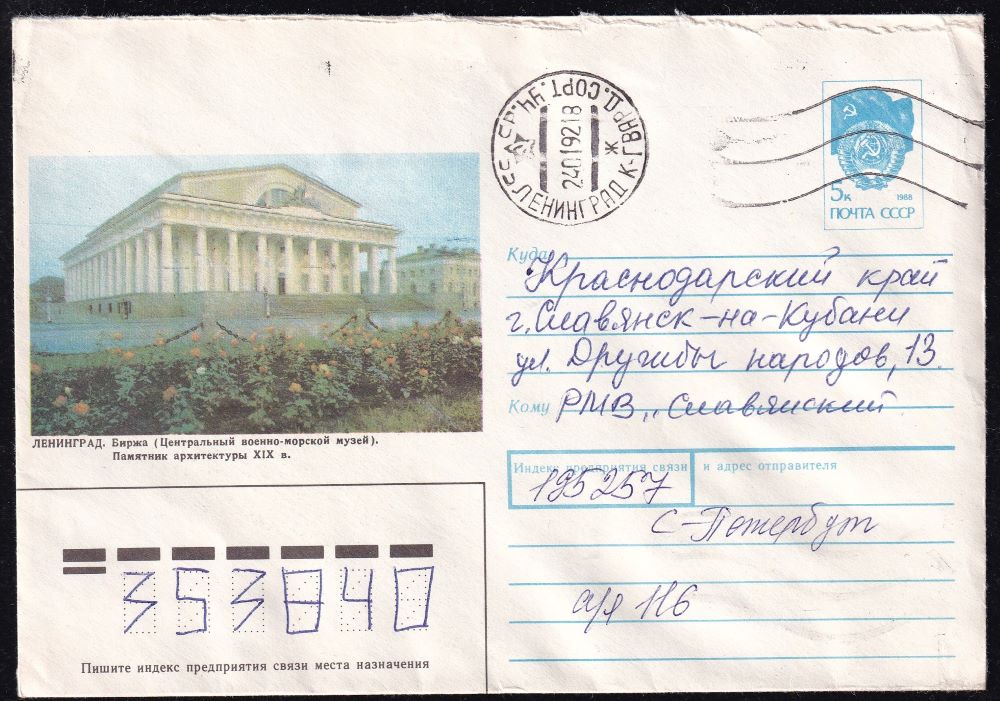 СССР. УЧ. СОРТ. Д. К-ГВАРД
24019218
Ж
ЛЕНИНГРАД
5к
1988
ПОЧТА СССР
Куда
Краснодарский край
г. Славянск-на-Кубани
ул. Дружбы народов, 13.
Кому РМВ „Славянский
ЛЕНИНГРАД. Биржа (Центральный военно-морской музей).
Памятник архитектуры XIX в.
Индекс предприятия связи и адрес отправителя
195257
С-Петербург
а/я 116
353840
Пишите индекс предприятия связи места назначения